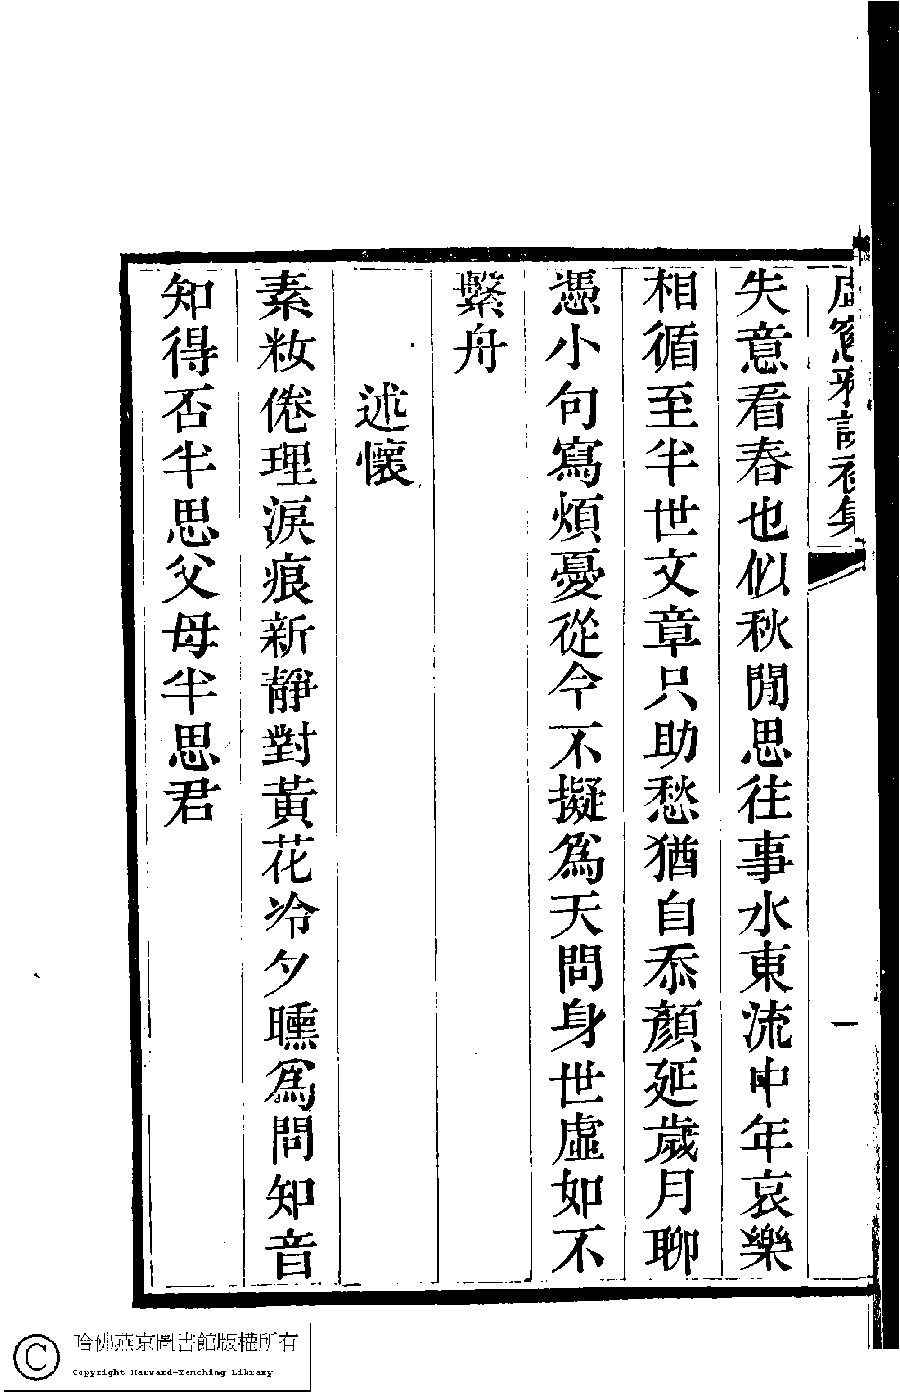 虛窻雅課初集
一
失意看春也似秋閒思往事水東流中年哀樂
相循至半世文章只助愁猶自忝顏延歲月聊
憑小句寫煩憂從今不擬爲天問身世虛如不
繫舟
述懷
素妝倦理淚痕新靜對黃花冷夕曛爲問知音
知得否半思父母半思君
哈佛燕京圖書館版權所有
Copyright Harvard-Yenching Library